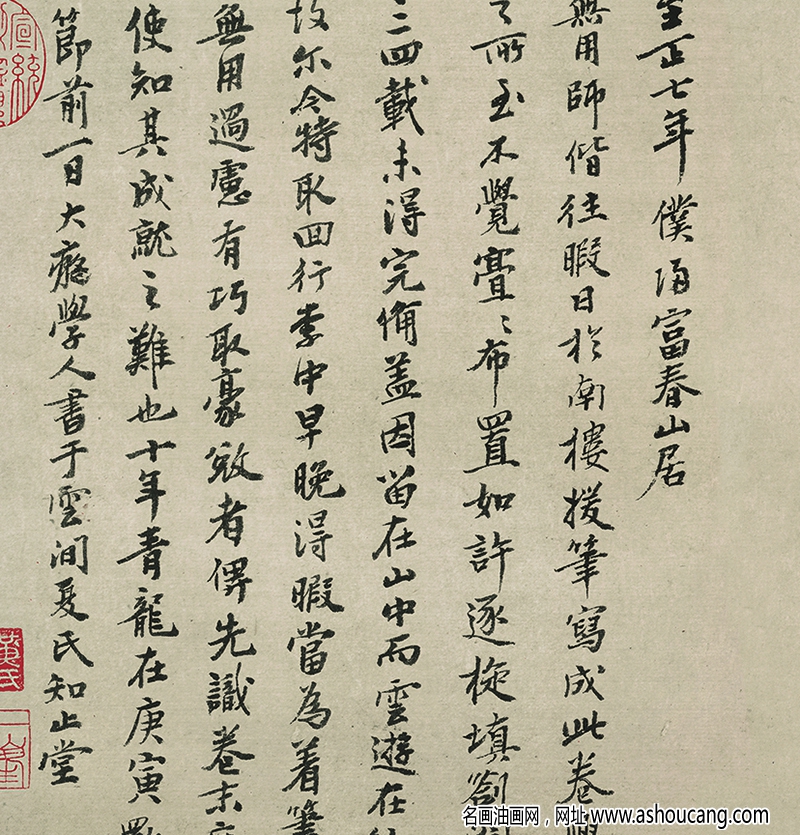 至正七年僕歸富春山居
無用師偕往暇日於南樓援筆寫成此卷
之所至不覺亹〻布置如許逐旋填劄
三四載未得完備蓋因留在山中而雲遊在
故尔今特取回行李中早晚得暇當為着筆
無用過慮有巧取豪敓者俾先識卷末
使知其成就之難也十年青龍在庚寅歜
節前一日大癡學人書于雲間夏氏知止堂
黃氏
一峯
名画油画网，网址 www.ashoucang.com